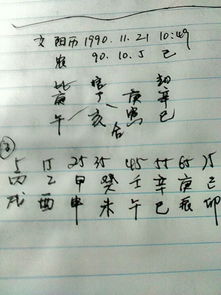 女 阳历 1990.11.21 10:49
农 90.10.5 巳
比 官 劫
庚 丁 庚 辛
午 亥 寅 巳
合
5 15 25 35 45 55 65 75
丙 乙 甲 癸 壬 辛 庚 己
戌 酉 申 未 午 巳 辰 卯